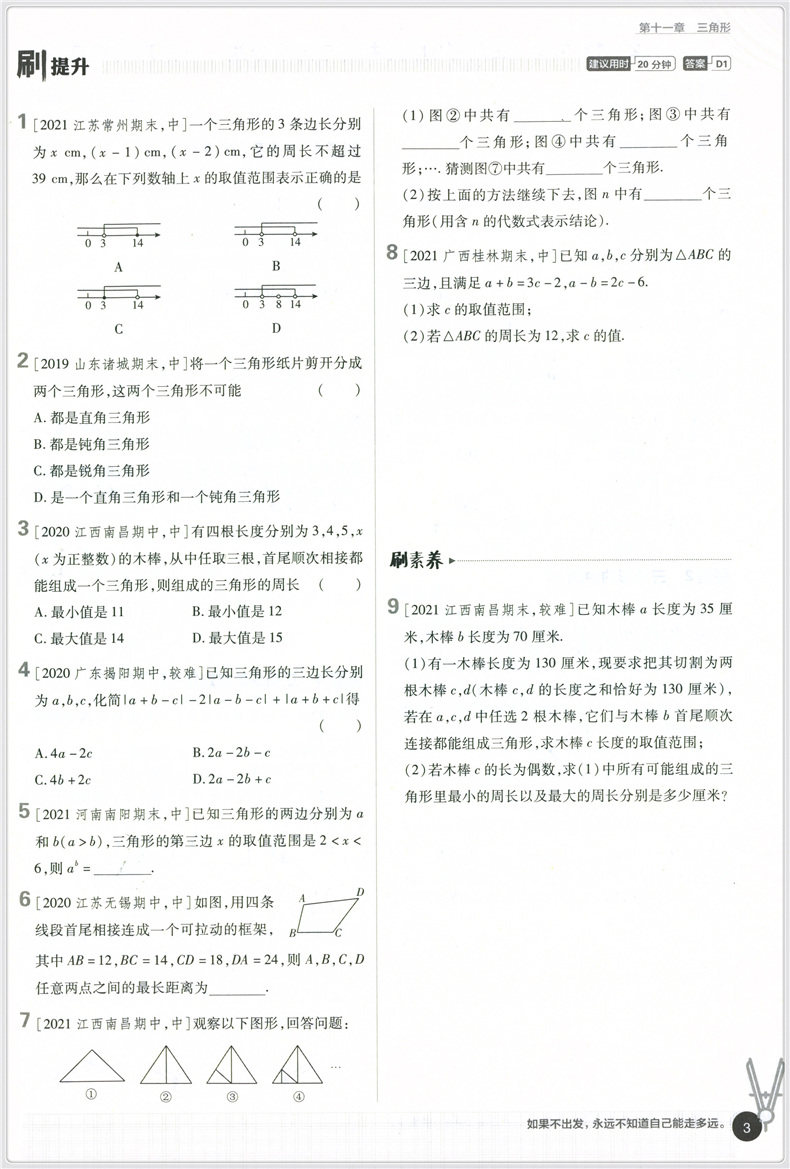 第十一章 三角形
刷提升
建议用时 20分钟 答案 D1
1 [2021江苏常州期末,中]一个三角形的3条边长分别
为x cm,(x-1)cm,(x-2)cm,它的周长不超过
39 cm,那么在下列数轴上x的取值范围表示正确的是
( )
0 3 14
A
0 3 14
B
0 3 14
C
0 3 8 14
D
2 [2019山东诸城期末,中]将一个三角形纸片剪开分成
两个三角形,这两个三角形不可能 ( )
A.都是直角三角形
B.都是钝角三角形
C.都是锐角三角形
D.是一个直角三角形和一个钝角三角形
3 [2020江西南昌期中,中]有四根长度分别为3,4,5,x
(x为正整数)的木棒,从中任取三根,首尾顺次相接都
能组成一个三角形,则组成的三角形的周长 ( )
A.最小值是11 B.最小值是12
C.最大值是14 D.最大值是15
4 [2020广东揭阳期中,较难]已知三角形的三边长分别
为a,b,c,化简|a+b-c|-2|a-b-c|+|a+b+c|得
( )
A.4a-2c B.2a-2b-c
C.4b+2c D.2a-2b+c
5 [2021河南南阳期末,中]已知三角形的两边分别为a
和b(a>b),三角形的第三边x的取值范围是2<x<
6,则a^b=________.
6 [2020江苏无锡期中,中]如图,用四条
线段首尾相接连成一个可拉动的框架,
其中AB=12,BC=14,CD=18,DA=24,则A,B,C,D
任意两点之间的最长距离为________.
A D
B C
7 [2021江西南昌期中,中]观察以下图形,回答问题:
① ② ③ ④ …
(1)图②中共有________个三角形;图③中共有
________个三角形;图④中共有________个三角
形;….猜测图⑦中共有________个三角形.
(2)按上面的方法继续下去,图n中有________个三
角形(用含n的代数式表示结论).
8 [2021广西桂林期末,中]已知a,b,c分别为△ABC的
三边,且满足a+b=3c-2,a-b=2c-6.
(1)求c的取值范围;
(2)若△ABC的周长为12,求c的值.
刷素养
9 [2021江西南昌期末,较难]已知木棒a长度为35厘
米,木棒b长度为70厘米.
(1)有一木棒长度为130厘米,现要求把其切割为两
根木棒c,d(木棒c,d的长度之和恰好为130厘米),
若在a,c,d中任选2根木棒,它们与木棒b首尾顺次
连接都能组成三角形,求木棒c长度的取值范围;
(2)若木棒c的长为偶数,求(1)中所有可能组成的三
角形里最小的周长以及最大的周长分别是多少厘米?
如果不出发,永远不知道自己能走多远。
3